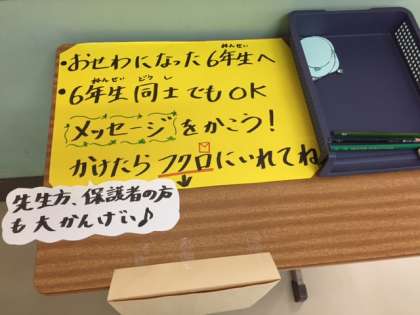 ・おせわになった6年生へ
・6年生同士でもOK
メッセージをかこう!
かけたらフクロにいれてね
先生方、保護者の方
も大かんげい♪